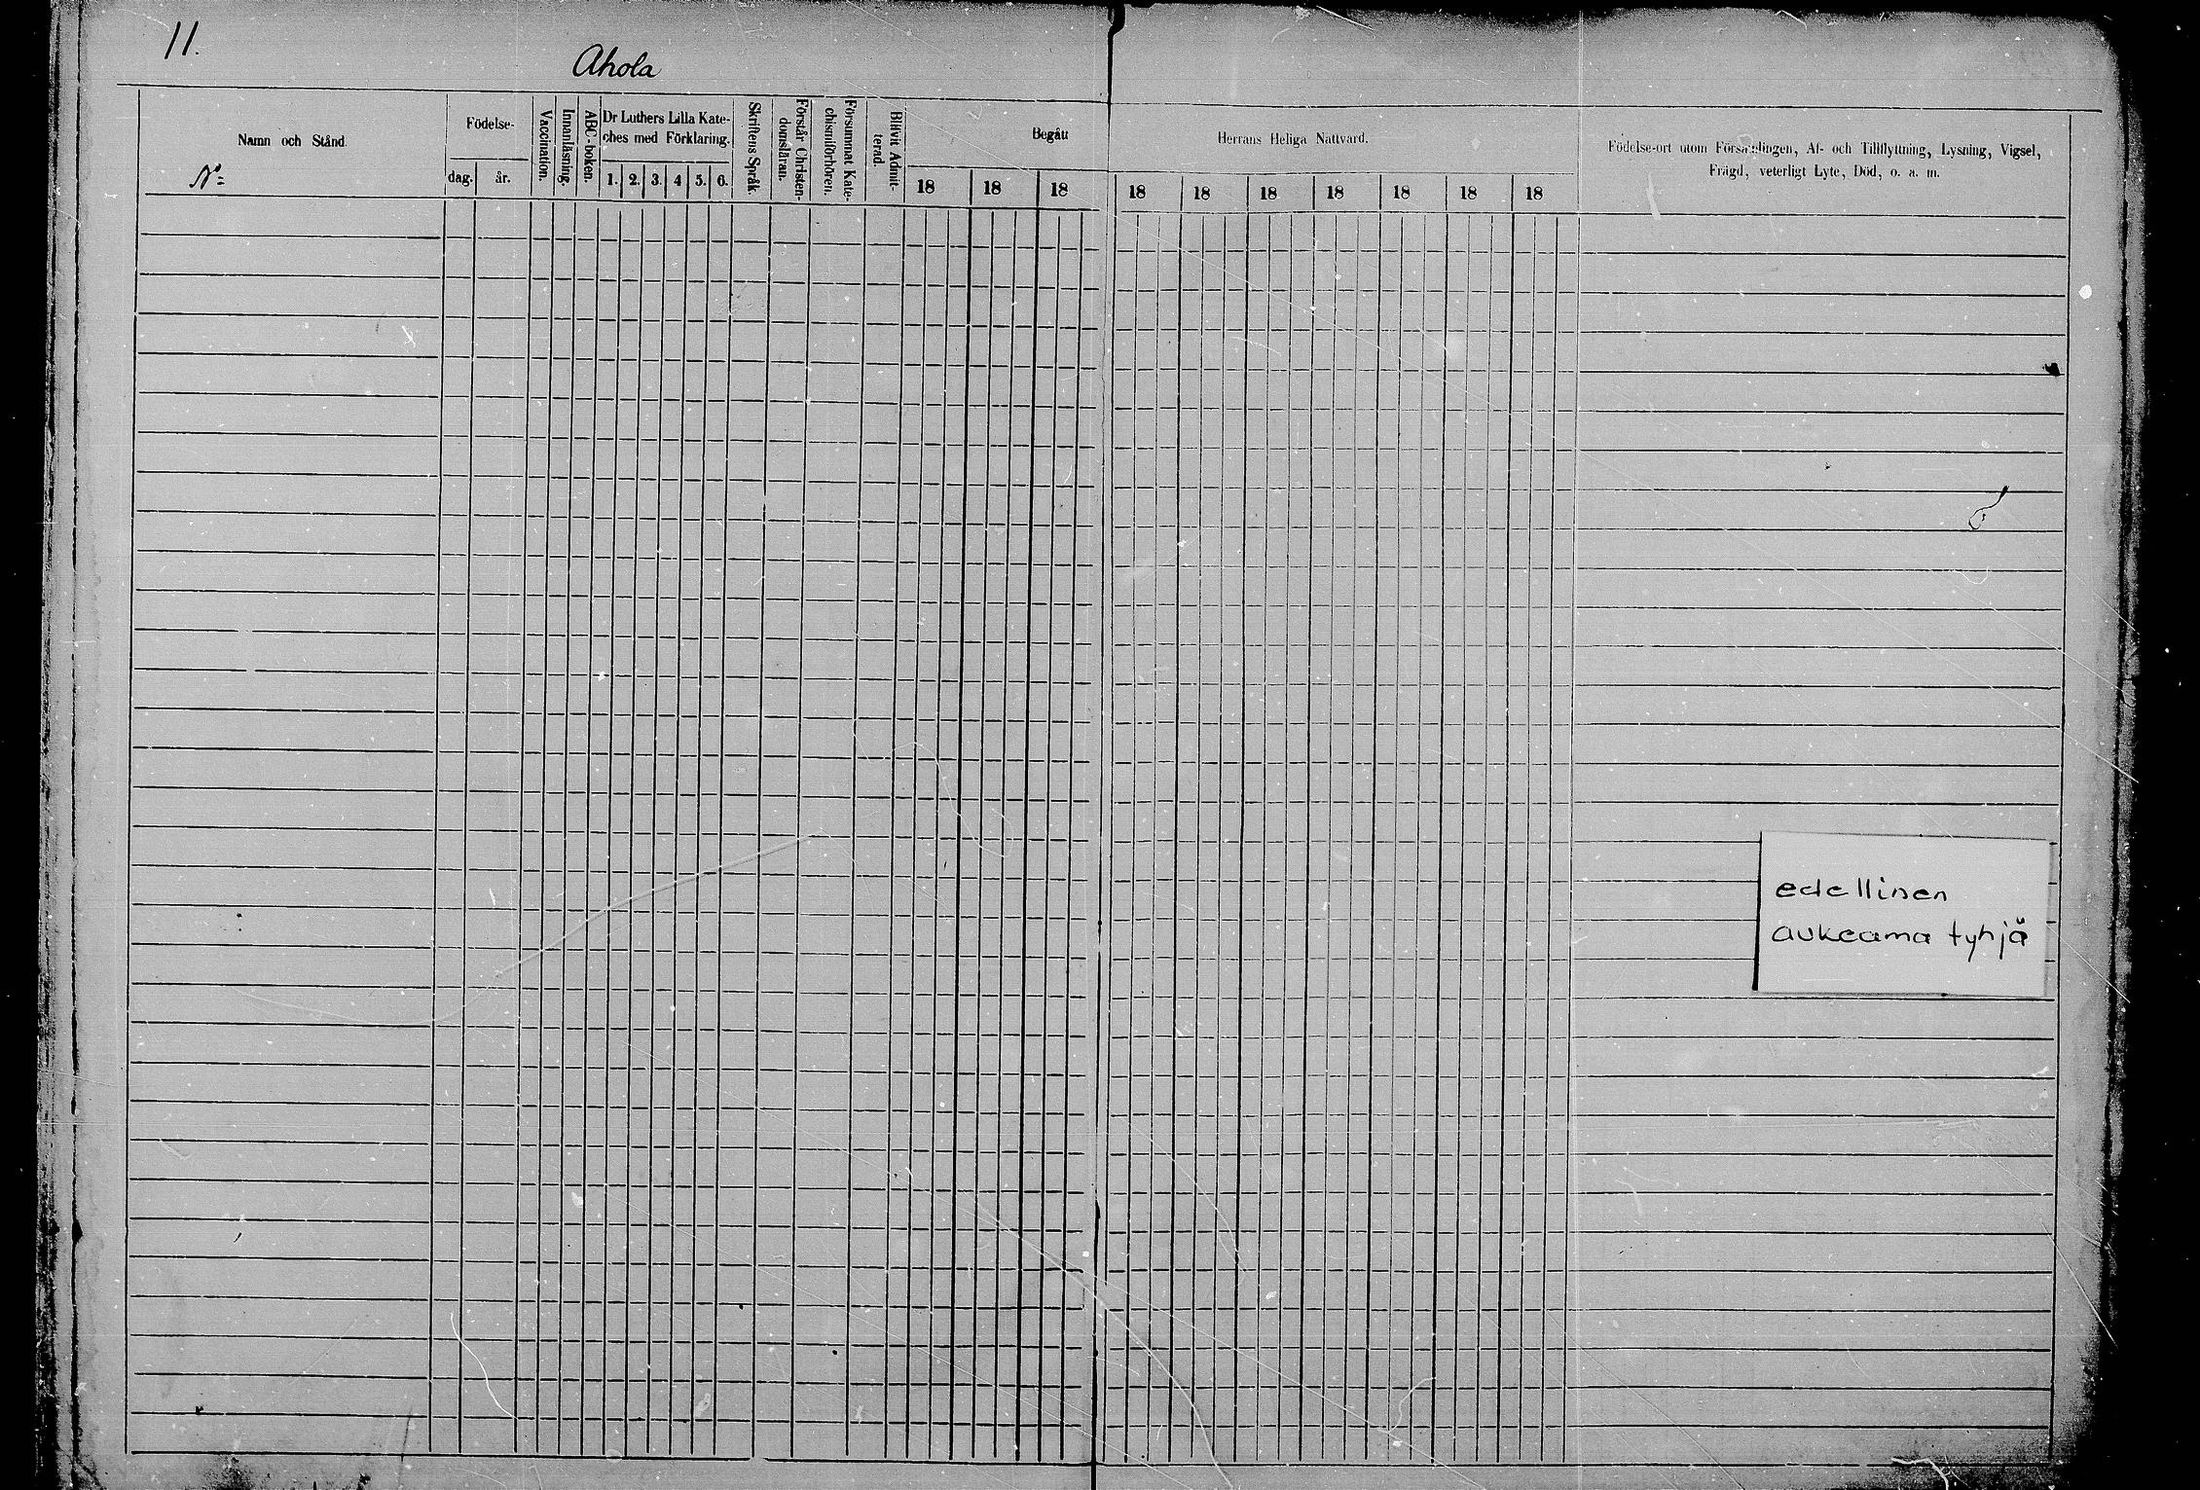 11.
Ahola
Namn och Stånd.
N:
Födelse-
dag.
år.
Vaccination.
Innanläsning.
ABC-boken.
Dr Luthers Lilla Kate-
ches med Förklaring.
1. 2. 3. 4 5. 6.
Skriftens Språk.
Förstår Christen-
domsläran.
Försummat Kate-
chismiförhören.
Blifvit Admit-
terad.
Begått
18 18 18
Herrans Heliga Nattvard.
18 18 18 18 18 18 18
Födelse-ort utom Församlingen, Af- och Tillflyttning, Lysning, Vigsel,
Frägd, veterligt Lyte, Död, o. a. m.
edellinen
aukeama tyhjä